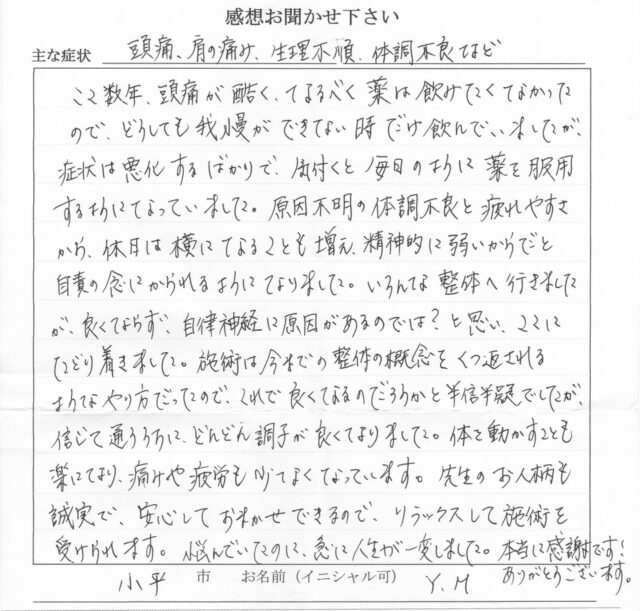 感想お聞かせ下さい
主な症状 頭痛、肩の痛み、生理不順、体調不良など
ここ数年、頭痛が酷く、なるべく薬は飲みたくなかった
ので、どうしても我慢ができない時だけ飲んでいましたが、
症状は悪化するばかりで、気付くと毎日のように薬を服用
するようになっていました。原因不明の体調不良と疲れやすさ
から、休日は横になることも増え、精神的に弱いからだと
自責の念にかられるようになりました。いろんな整体へ行きました
が、良くならず、自律神経に原因があるのでは?と思い、ここに
たどり着きました。施術は今までの整体の概念をくつ返される
ようなやり方だったので、これで良くなるのだろうかと半信半疑でしたが、
信じて通ううちに、どんどん調子が良くなりました。体を動かすことも
楽になり、痛みや疲労も少なくなっています。先生のお人柄も
誠実で、安心しておまかせできるので、リラックスして施術を
受けられます。悩んでいたのに、急に人生が一変しました。本当に感謝です!
ありがとうございます。
小平 市 お名前(イニシャル可) Y.M